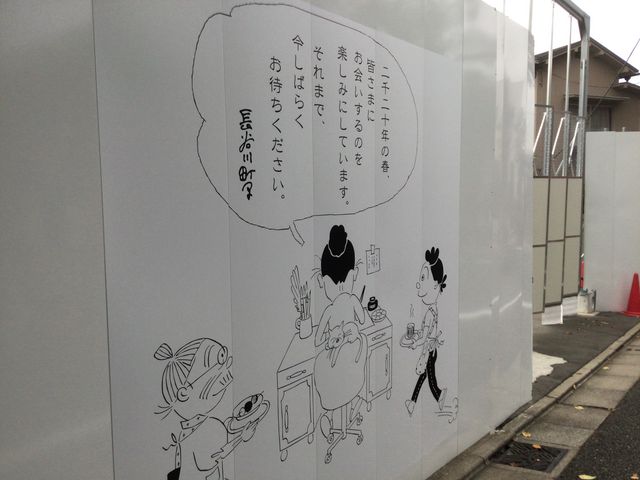 二千二十年の春、
皆さまに
お会いするのを
楽しみにしています。
それまで、
今しばらく
お待ちください。
長谷川町子